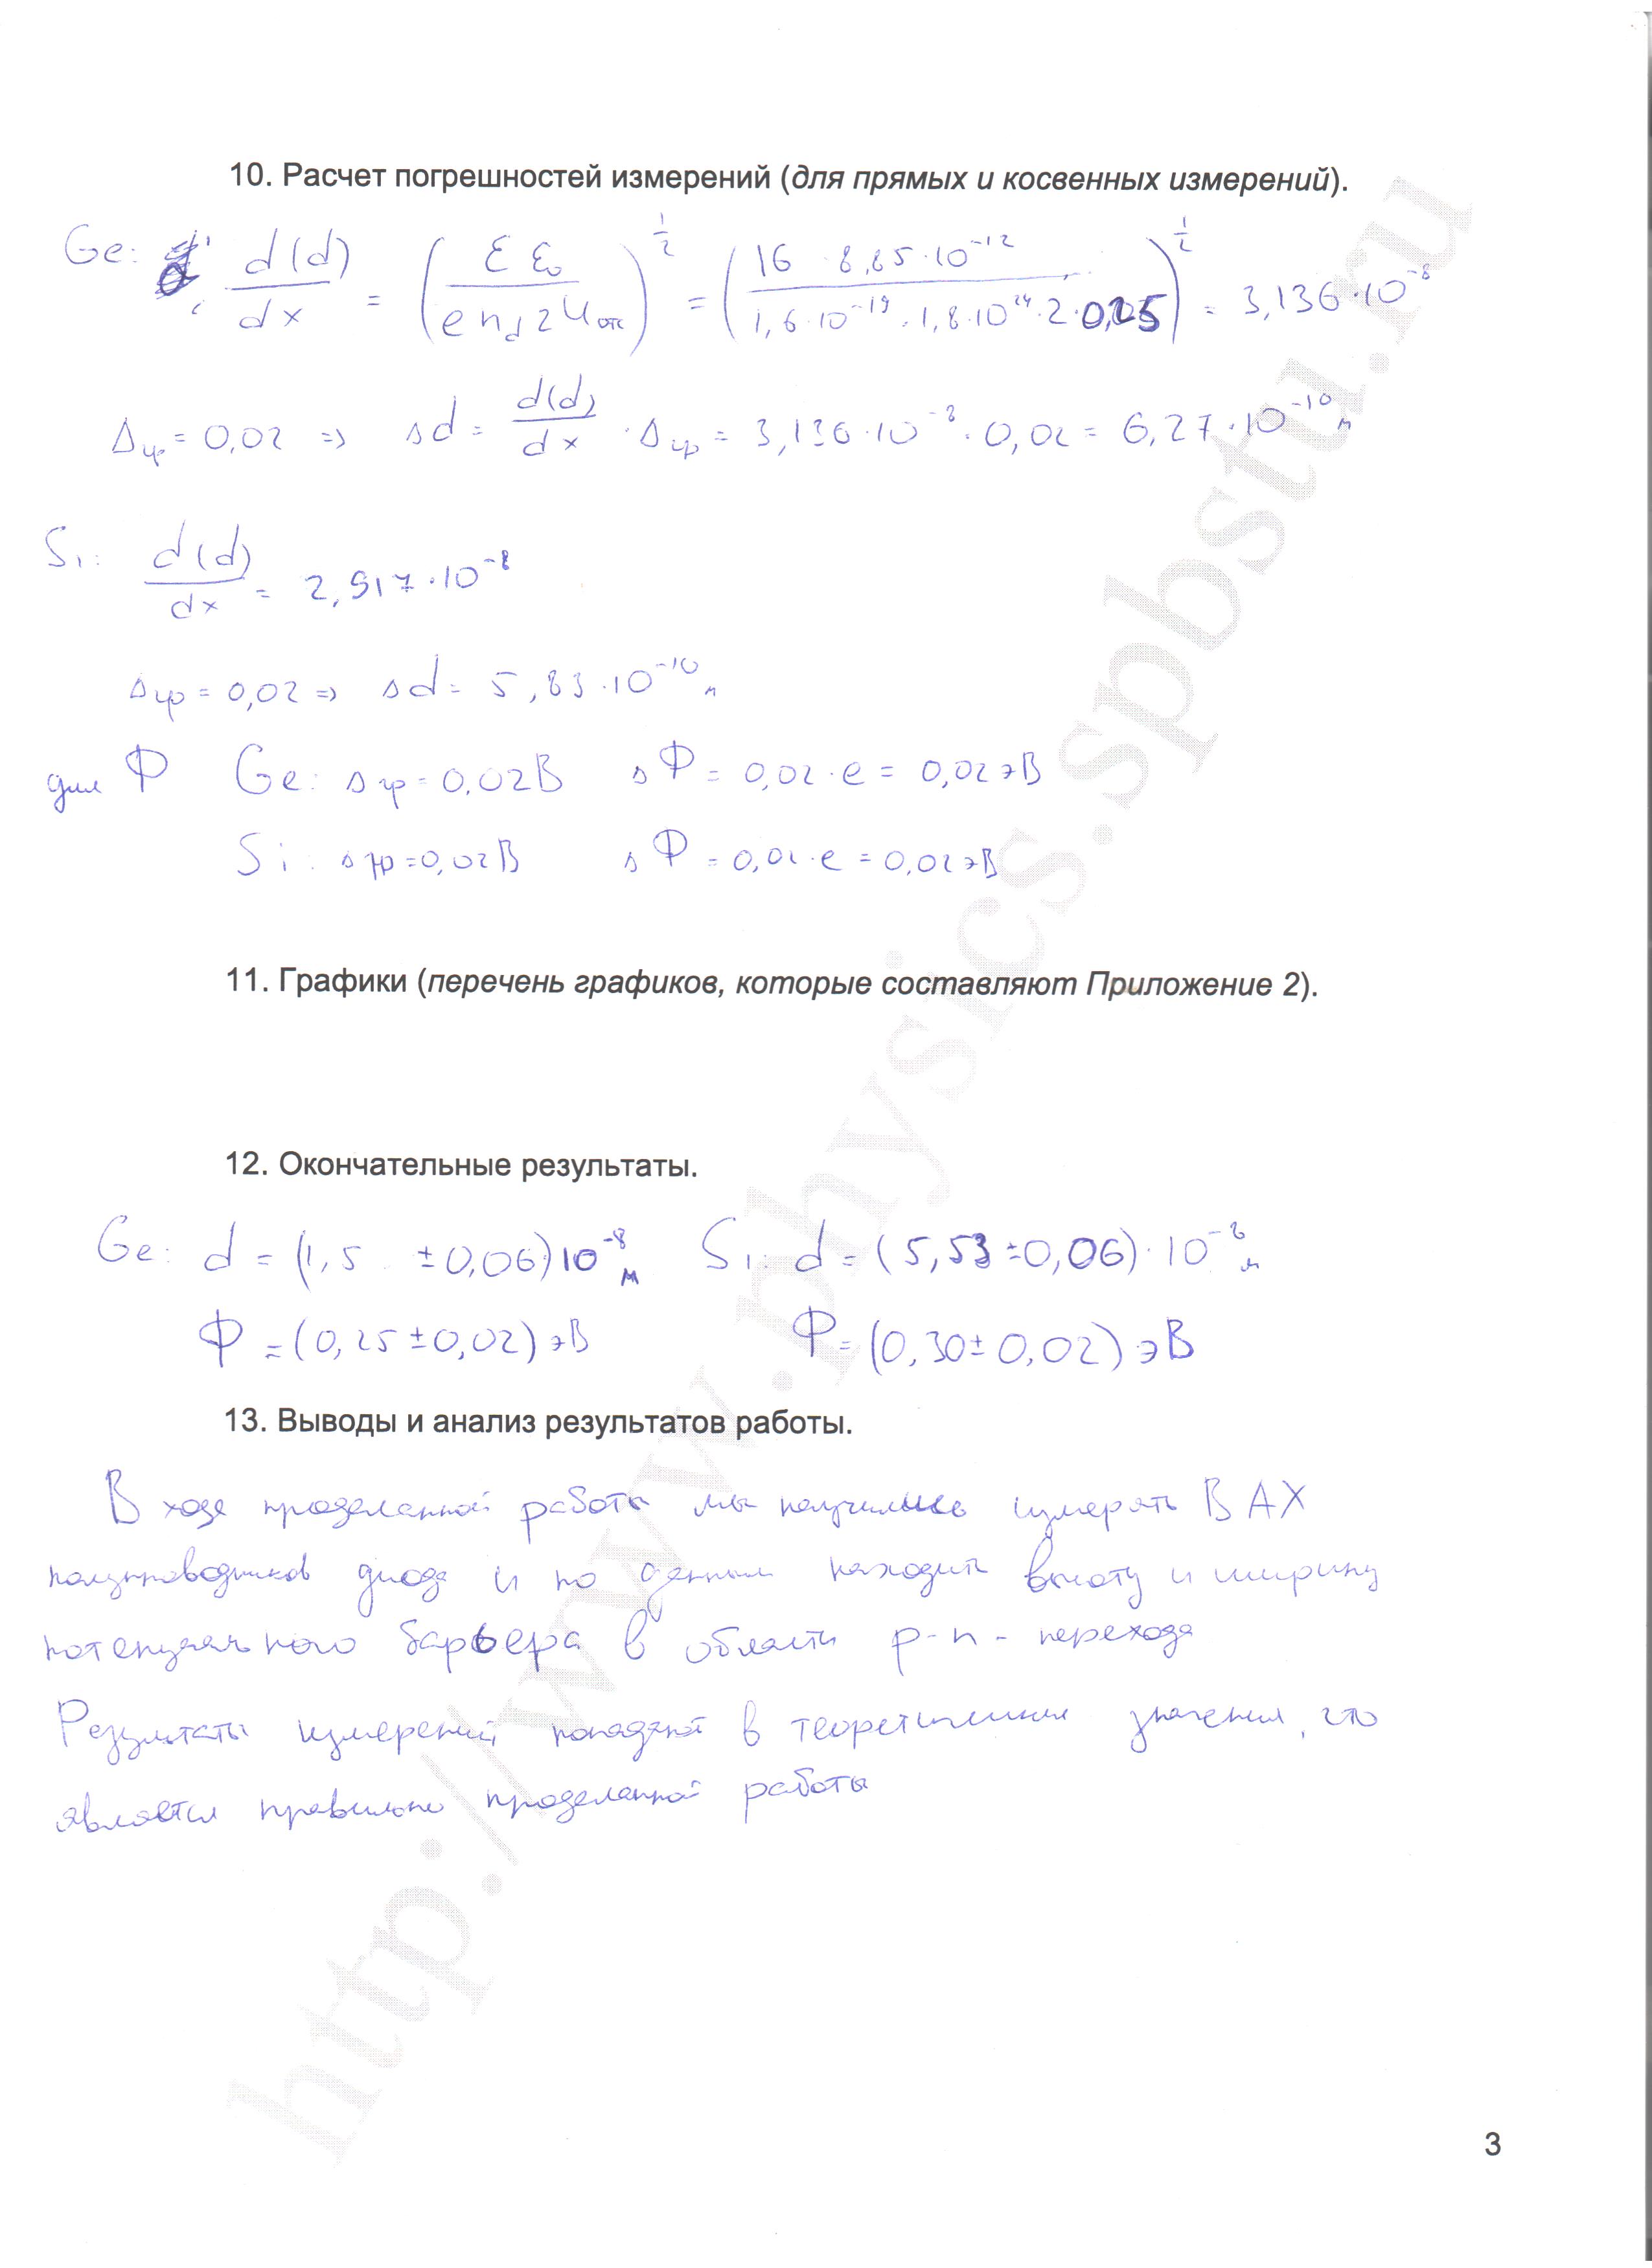 10. Расчет погрешностей измерений (для прямых и косвенных измерений).
Ge: d(d)/dx = (ε ε₀ / e n_d 2 U_отс)^(1/2) = (16 · 8,85·10⁻¹² / 1,6·10⁻¹⁹ · 1,8·10²⁴ · 2 · 0,25)^(1/2) = 3,136·10⁻⁸
Δφ = 0,02 => Δd = d(d)/dx · Δφ = 3,136·10⁻⁸ · 0,02 = 6,27·10⁻¹⁰ м
Si: d(d)/dx = 2,917·10⁻⁸
Δφ = 0,02 => Δd = 5,83·10⁻¹⁰ м
для Ф Ge: Δφ = 0,02В ΔФ = 0,02·e = 0,02 эВ
Si: Δφ = 0,02В ΔФ = 0,02·e = 0,02 эВ
11. Графики (перечень графиков, которые составляют Приложение 2).
12. Окончательные результаты.
Ge: d = (1,5 ± 0,06) 10⁻⁸ м Si: d = (5,53 ± 0,06)·10⁻⁸ м
Ф = (0,25 ± 0,02) эВ Ф = (0,30 ± 0,02) эВ
13. Выводы и анализ результатов работы.
В ходе проделанной работы мы научились измерять ВАХ
полупроводников диода и по данным находить высоту и ширину
потенциального барьера в области p-n-перехода
Результаты измерений попадают в теоретические значения, что
является правильно проделанной работы
3
http://www.physics.spbstu.ru